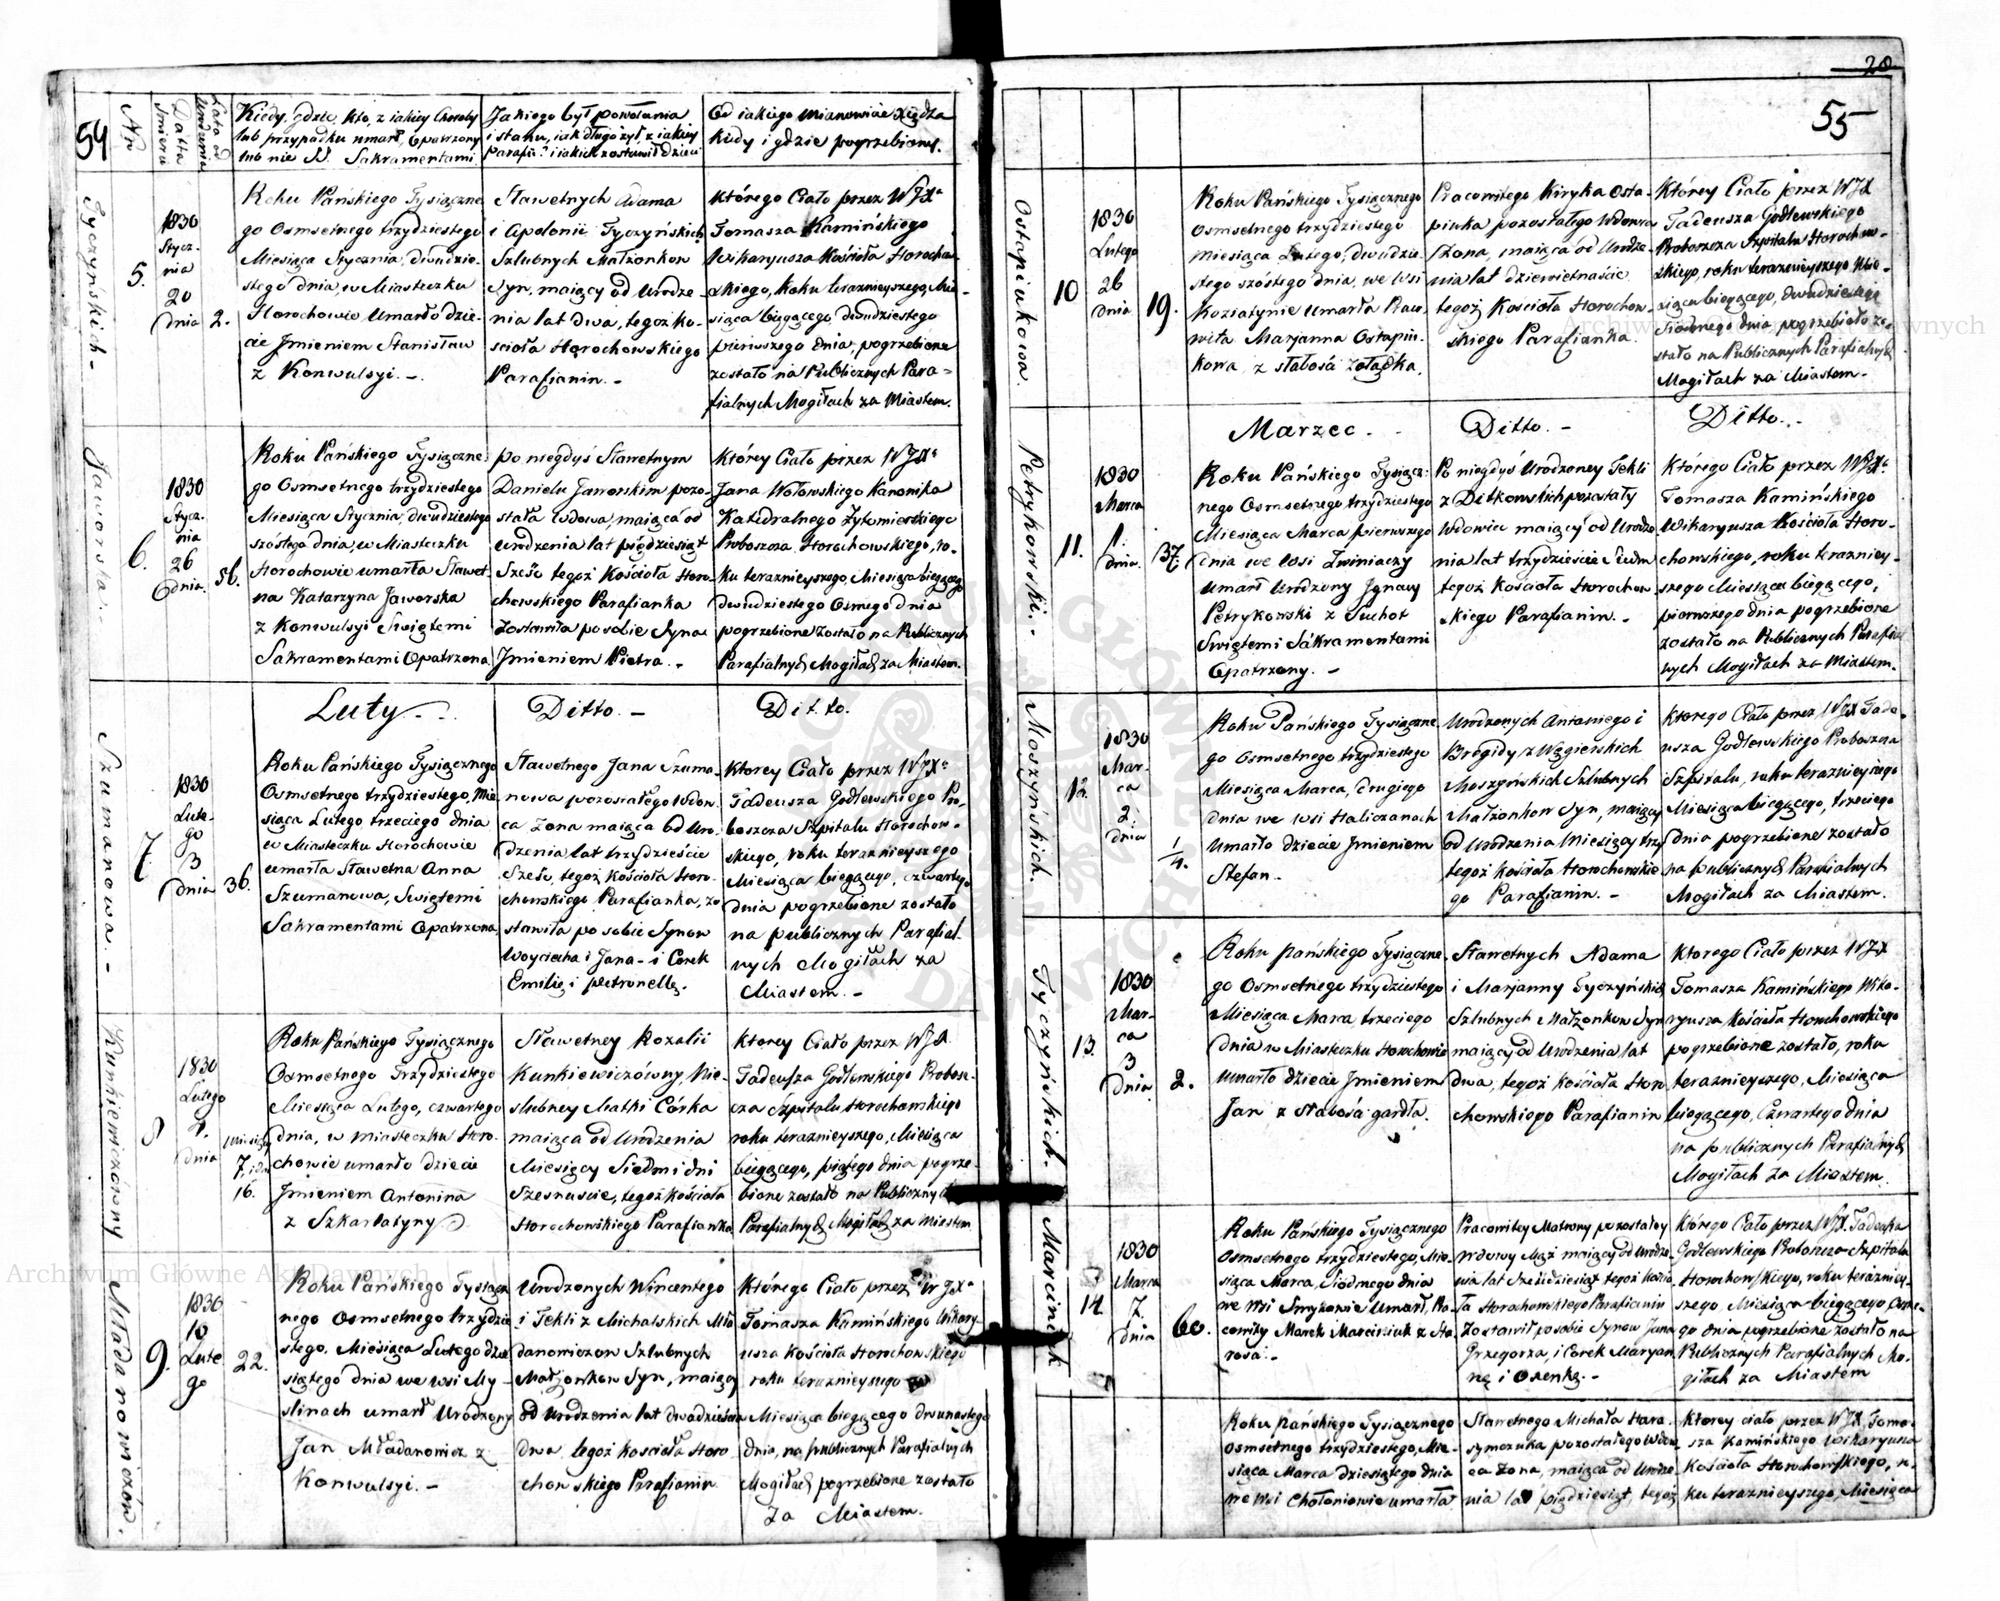 54
Nr
Datta Śmierci
Lata od Urodzenia
Kiedy, gdzie, kto, z iakiey Choroby
lub przypadku umarł, Opatrzony
lub nie SS. Sakramentami
Jakiego był powołania
i stanu, iak długo żył, z iakiey
Parafii? i iakich zostawił dzieci
Od iakiego mianowicie Xiędza
kiedy i gdzie pogrzebiony.
Tyczyńskich -
5.
1830
Stycz-
nia
20
dnia
2.
Roku Pańskiego Tysiączne
go Osmsetnego trzydziestego
Miesiąca Stycznia, dwudzie-
stego dnia, w Miasteczku
Horochowie Umarło dzie-
cie Jmieniem Stanisław
z Konwulsyi. -
Sławetnych Adama
i Apolonii Tyczyńskich
Szlubnych Małżonkow
Syn, maiący od Urodze-
nia lat dwa, tegoż Ko-
scioła Horochowskiego
Parafianin. -
Którego Ciało przez WJXa
Tomasza Kamińskiego
Wikaryusza Kościoła Horochow-
skiego, Roku teraznieyszego, Mie-
siąca biegącego, dwudziestego
pierwszego dnia, pogrzebione
zostało na Publicznych Para-
fialnych Mogiłach za Miastem.
Jaworska
6.
1830
Stycz-
nia
26
dnia.
56.
Roku Pańskiego Tysiączne
go Osmsetnego trzydziestego
Miesiąca Stycznia, dwudziestego
szóstego dnia, w Miasteczku
Horochowie umarła Sławet-
na Katarzyna Jaworska
z Konwulsyi Swiętemi
Sakramentami Opatrzona
po niegdyś Sławetnym
Danielu Jaworskim pozo-
stała wdowa, maiąca od
urodzenia lat pięcdziesiąt
Sześć tegoż Kościoła Horo-
chowskiego Parafianka
Zostawiła po sobie Syna
Jmieniem Piotra. -
Którey Ciało przez WJXa
Jana Wołowskiego Kanonika
Katedralnego Żytomierskiego
Proboszcza Horochowskiego, ro-
ku teraznieyszego, Miesiąca biegącego
dwudziestego Osmego dnia
pogrzebione zostało na Publicznych
Parafialnych Mogiłach za Miastem.
Luty - .
Ditto. -
Ditto.
Szumanowa. -
7.
1830
Lute-
go
3
dnia
36.
Roku Pańskiego Tysiącznego
Osmsetnego trzydziestego, Mie
siąca Lutego trzeciego dnia
w Miasteczku Horochowie
umarła Sławetna Anna
Szumanowa, Swiętemi
Sakramentami Opatrzona
Sławetnego Jana Szuma
nowa pozostałego wdow-
ca Żona maiąca od Uro-
dzenia lat trzydzieście
Sześć, tegoż Kościoła Horo-
chowskiego Parafianka, zo
stawiła po sobie Synow
Woyciecha i Jana - i Corek
Emilię i Petronellę.
Ktorey Ciało przez WJXa
Tadeusza Godlewskiego Pro-
boszcza Szpitalu Horochow-
skiego, roku teraznieyszego
Miesiąca biegącego, czwartego
dnia pogrzebione zostało
na publicznych Parafial-
nych Mogiłach za
Miastem. -
Kunkiewiczówny
8
1830
Lutego
4.
dnia
Miesięcy
7. i dni
16.
Roku Pańskiego Tysiącznego
Osmsetnego Trzydziestego
Miesiąca Lutego, czwartego
dnia, w Miasteczku Horo-
chowie umarło dziecie
Jmieniem Antonina
z Szkarlatyny
Sławetney Rozalii
Kunkiewiczówny, Nie-
slubney Matki Córka
maiąca od Urodzenia
Miesięcy Siedm i dni
Szesnaście, tegoż Kościoła
Horochowskiego Parafianka
Ktorey Ciało przez WJX
Tadeusza Godlewskiego Probosz-
cza Szpitalu Horochowskiego
roku teraznieyszego, Miesiąca
biegącego, piątego dnia pogrze-
bione zostało na Publicznych
Parafialnych Mogiłach za Miastem
Mładanowiczów.
9.
1830
10
Lute
go
22.
Roku Pańskiego Tysiącz
nego Osmsetnego trzydzie
stego, Miesiąca Lutego dzie
siątego dnia we wsi My-
slinach umarł Urodzony
Jan Mładanowicz z
Konwulsyi. -
Urodzonych Wincentego
i Tekli z Michalskich Mła
danowiczow Szlubnych
Małżonkow Syn, maiący
od Urodzenia lat dwadzieścia
dwa tegoż Kościoła Horo
chowskiego Parafianin
Którego Ciało przez WJXa
Tomasza Kamińskiego Wikary-
usza Kościoła Horochowskiego
roku teraznieyszego
Miesiąca biegącego dwunastego
dnia, na publicznych Parafialnych
Mogiłach pogrzebione zostało
Za Miastem.
20
55
Ostapiukowa.
10
1830
Lutego
26
dnia
19.
Roku Pańskiego Tysiącznego
Osmsetnego trzydziestego
miesiąca Lutego, dwudzie-
stego szóstego dnia, we wsi
Koziatynie umarła Praco-
wita Marjanna Ostapiu-
kowa z słabości żołądka.
Pracowitego Kiryka Osta-
piuka pozostałego Wdowca
Żona, maiąca od Urodze-
nia lat dziewietnaście
tegoż Kościoła Horochow-
skiego Parafianka.
Którey Ciało przez WJX
Tadeusza Godlewskiego
Proboszcza Szpitalu Horochow-
skiego, roku teraznieyszego Mie-
siąca biegącego, dwudziestego
Siodmego dnia, pogrzebione zo-
stało na Publicznych Parafialnych
Mogiłach za Miastem -
Marzec. -
Ditto. -
Ditto. -
Petrykowski. -
11.
1830
Marca
1.
dnia
37.
Roku Pańskiego Tysiącz-
nego Osmsetnego trzydziestego
Miesiąca Marca pierwszego
dnia we wsi Zwiniaczy
umarł Urodzony Jgnacy
Petrykowski z Suchot
Swiętemi Sakramentami
Opatrzony. -
Po niegdyś Urodzoney Tekli
z Ditkowskich pozostały
Wdowiec maiący od Urodze
nia lat trzydzieście Siedm
tegoż Kościoła Horochow
skiego Parafianin. -
Którego Ciało przez WJXa
Tomasza Kamińskiego
Wikaryusza Kościoła Horo-
chowskiego, roku terazniey-
szego Miesiąca biegącego,
pierwszego dnia pogrzebione
zostało na Publicznych Parafial
nych Mogiłach za Miastem.
Moszyńskich.
12.
1830
Mar-
ca
2.
dnia
1/4.
Roku Pańskiego Tysiączne
go Osmsetnego trzydziestego
Miesiąca Marca, drugiego
dnia we wsi Haliczanach
Umarło dziecie Jmieniem
Stefan. -
Urodzonych Antoniego i
Brygidy z Węgierskich
Moszyńskich Szlubnych
Małżonkow Syn, maiący
od Urodzenia Miesięcy trzy
tegoż Kościoła Horochowskie
go Parafianin. -
Ktorego Ciało przez WJX Tade-
usza Godlewskiego Proboszcza
Szpitalu, roku teraznieyszego
Miesiąca biegącego, trzeciego
dnia pogrzebione zostało
na publicznych Parafialnych
Mogiłach za Miastem.
Tyczyńskich.
13.
1830
Mar-
ca
3
dnia
2.
Roku Pańskiego Tysiączne-
go Osmsetnego trzydziestego
Miesiąca Marca trzeciego
dnia w Miasteczku Horochowie
umarło dziecie Jmieniem
Jan z słabości gardła.
Sławetnych Adama
i Marjanny Tyczyńskich
Szlubnych Małżonkow Syn
maiący od Urodzenia lat
dwa, tegoż Kościoła Horo
chowskiego Parafianin
Ktorego Ciało przez WJX
Tomasza Kamińskiego Wika-
ryusza Kościoła Horochowskiego
pogrzebione zostało, roku
teraznieyszego, Miesiąca
biegącego, Czwartego dnia
na publicznych Parafialnych
Mogiłach Za Miastem.
Marciniuk
14.
1830
Marca
7.
dnia
60.
Roku Pańskiego Tysiącznego
Osmsetnego trzydziestego, Mie-
siąca Marca, Siódmego dnia
we wsi Smykowie umarł, Pra-
cowity Marek Marciniuk z Sta
rości. -
Pracowitey Matrony pozostałey
Wdowy Mąż maiący od Urodze-
nia lat Sześćdziesiąt tegoż Kościo
ła Horochowskiego Parafianin
Zostawił po sobie Synow Jana
Grzegorza, i Corek Maryan
nę i Oxenkę. -
Którego Ciało przez WJX. Tadeusza
Godlewskiego Proboszcza Szpitala
Horochowskiego, roku terazniey-
szego, Miesiąca biegącego, Osme-
go dnia pogrzebione zostało na
Publicznych Parafialnych Mo-
giłach za Miastem
Roku pańskiego Tysiącznego
Osmsetnego trzydziestego, Mie-
siąca Marca dziesiątego dnia
we wsi Chołoniowie umarła
Sławetnego Michała Hara-
symczuka pozostałego Wdow
ca Żona, maiąca od Urodze
nia lat pięćdziesiąt, tegoż
Ktorey ciało przez WJX Toma-
sza Kamińskiego Wikaryusza
Kościoła Horochowskiego, ro-
ku teraznieyszego, Miesiąca
Archiwum Główne Akt Dawnych
Archiwum Główne Akt Dawnych